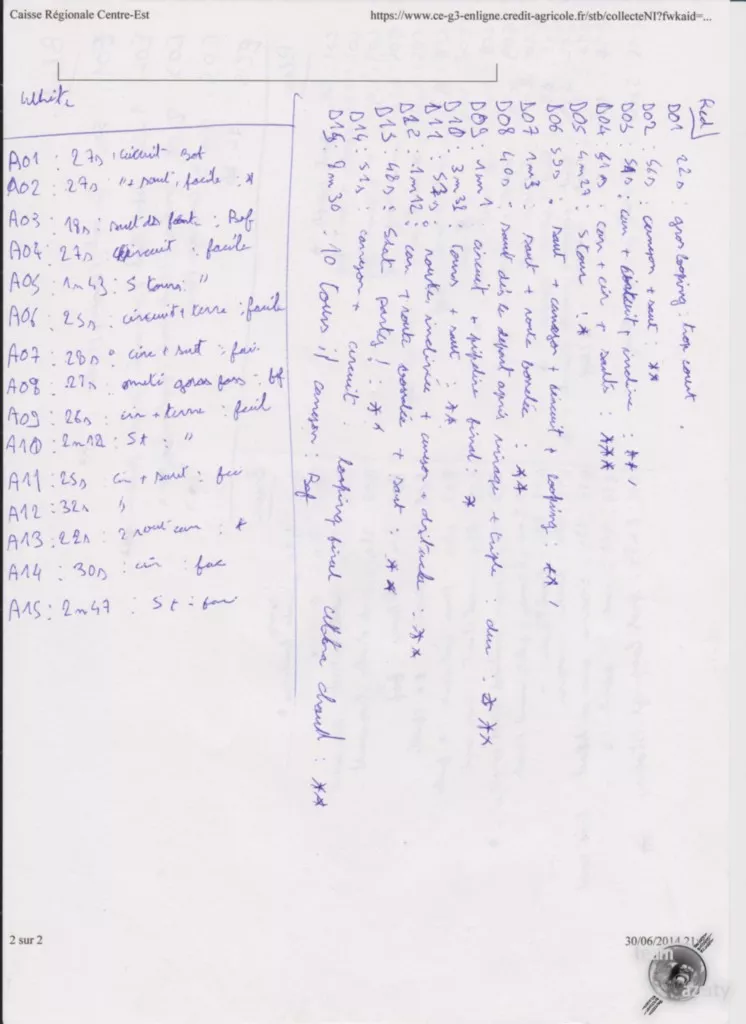 Caisse Régionale Centre-Est
https://www.ce-g3-enligne.credit-agricole.fr/stb/collecteNI?fwkaid=...
White
A01 : 27s : circuit Bof
A02 : 27s " + saut, facile *
A03 : 19s : saut de : Bof
A04 : 27s circuit : facile
A05 : 1m43 : 5 tours : "
A06 : 25s : circuit + terre : facile
A07 : 28s : circ + saut : faci
A08 : 27s
A09 : 26s : cir + terre : facil
A10 : 2m12 : 5t : "
A11 : 25s cir + saut : fac
A12 : 32s "
A13 : 22s : 2 saut *
A14 : 30s : cir : fac
A15 : 2m47 : 5t : faci
Red
D01 22s : gros looping : trop court.
D02 : 56s : canyon + saut : **
D03 : 54s : can + incline : **
D04 : can + cir + sauts : ***
D05 4m29 : 5 tour : *
D06 59s : saut + canyon + circuit + looping : **
D07 1m3 saut + route bombée : **
D08 40s : saut dès le départ après virage + triple : dur : ***
D09 : 1m1 : circuit + final : *
D10 : 3m38 : tours + saut : **
D11 : 57s : route inclinée + canyon + obstacle : **
D12 : 1m12 : can + route bombée + saut : **
D13 : 48s : Slut partez ! : **
D14 : 51s : canyon + circuit : looping final chaud : **
D15 : 9m30 : 10 tours canyon : Bof
2 sur 2
30/06/2014 21